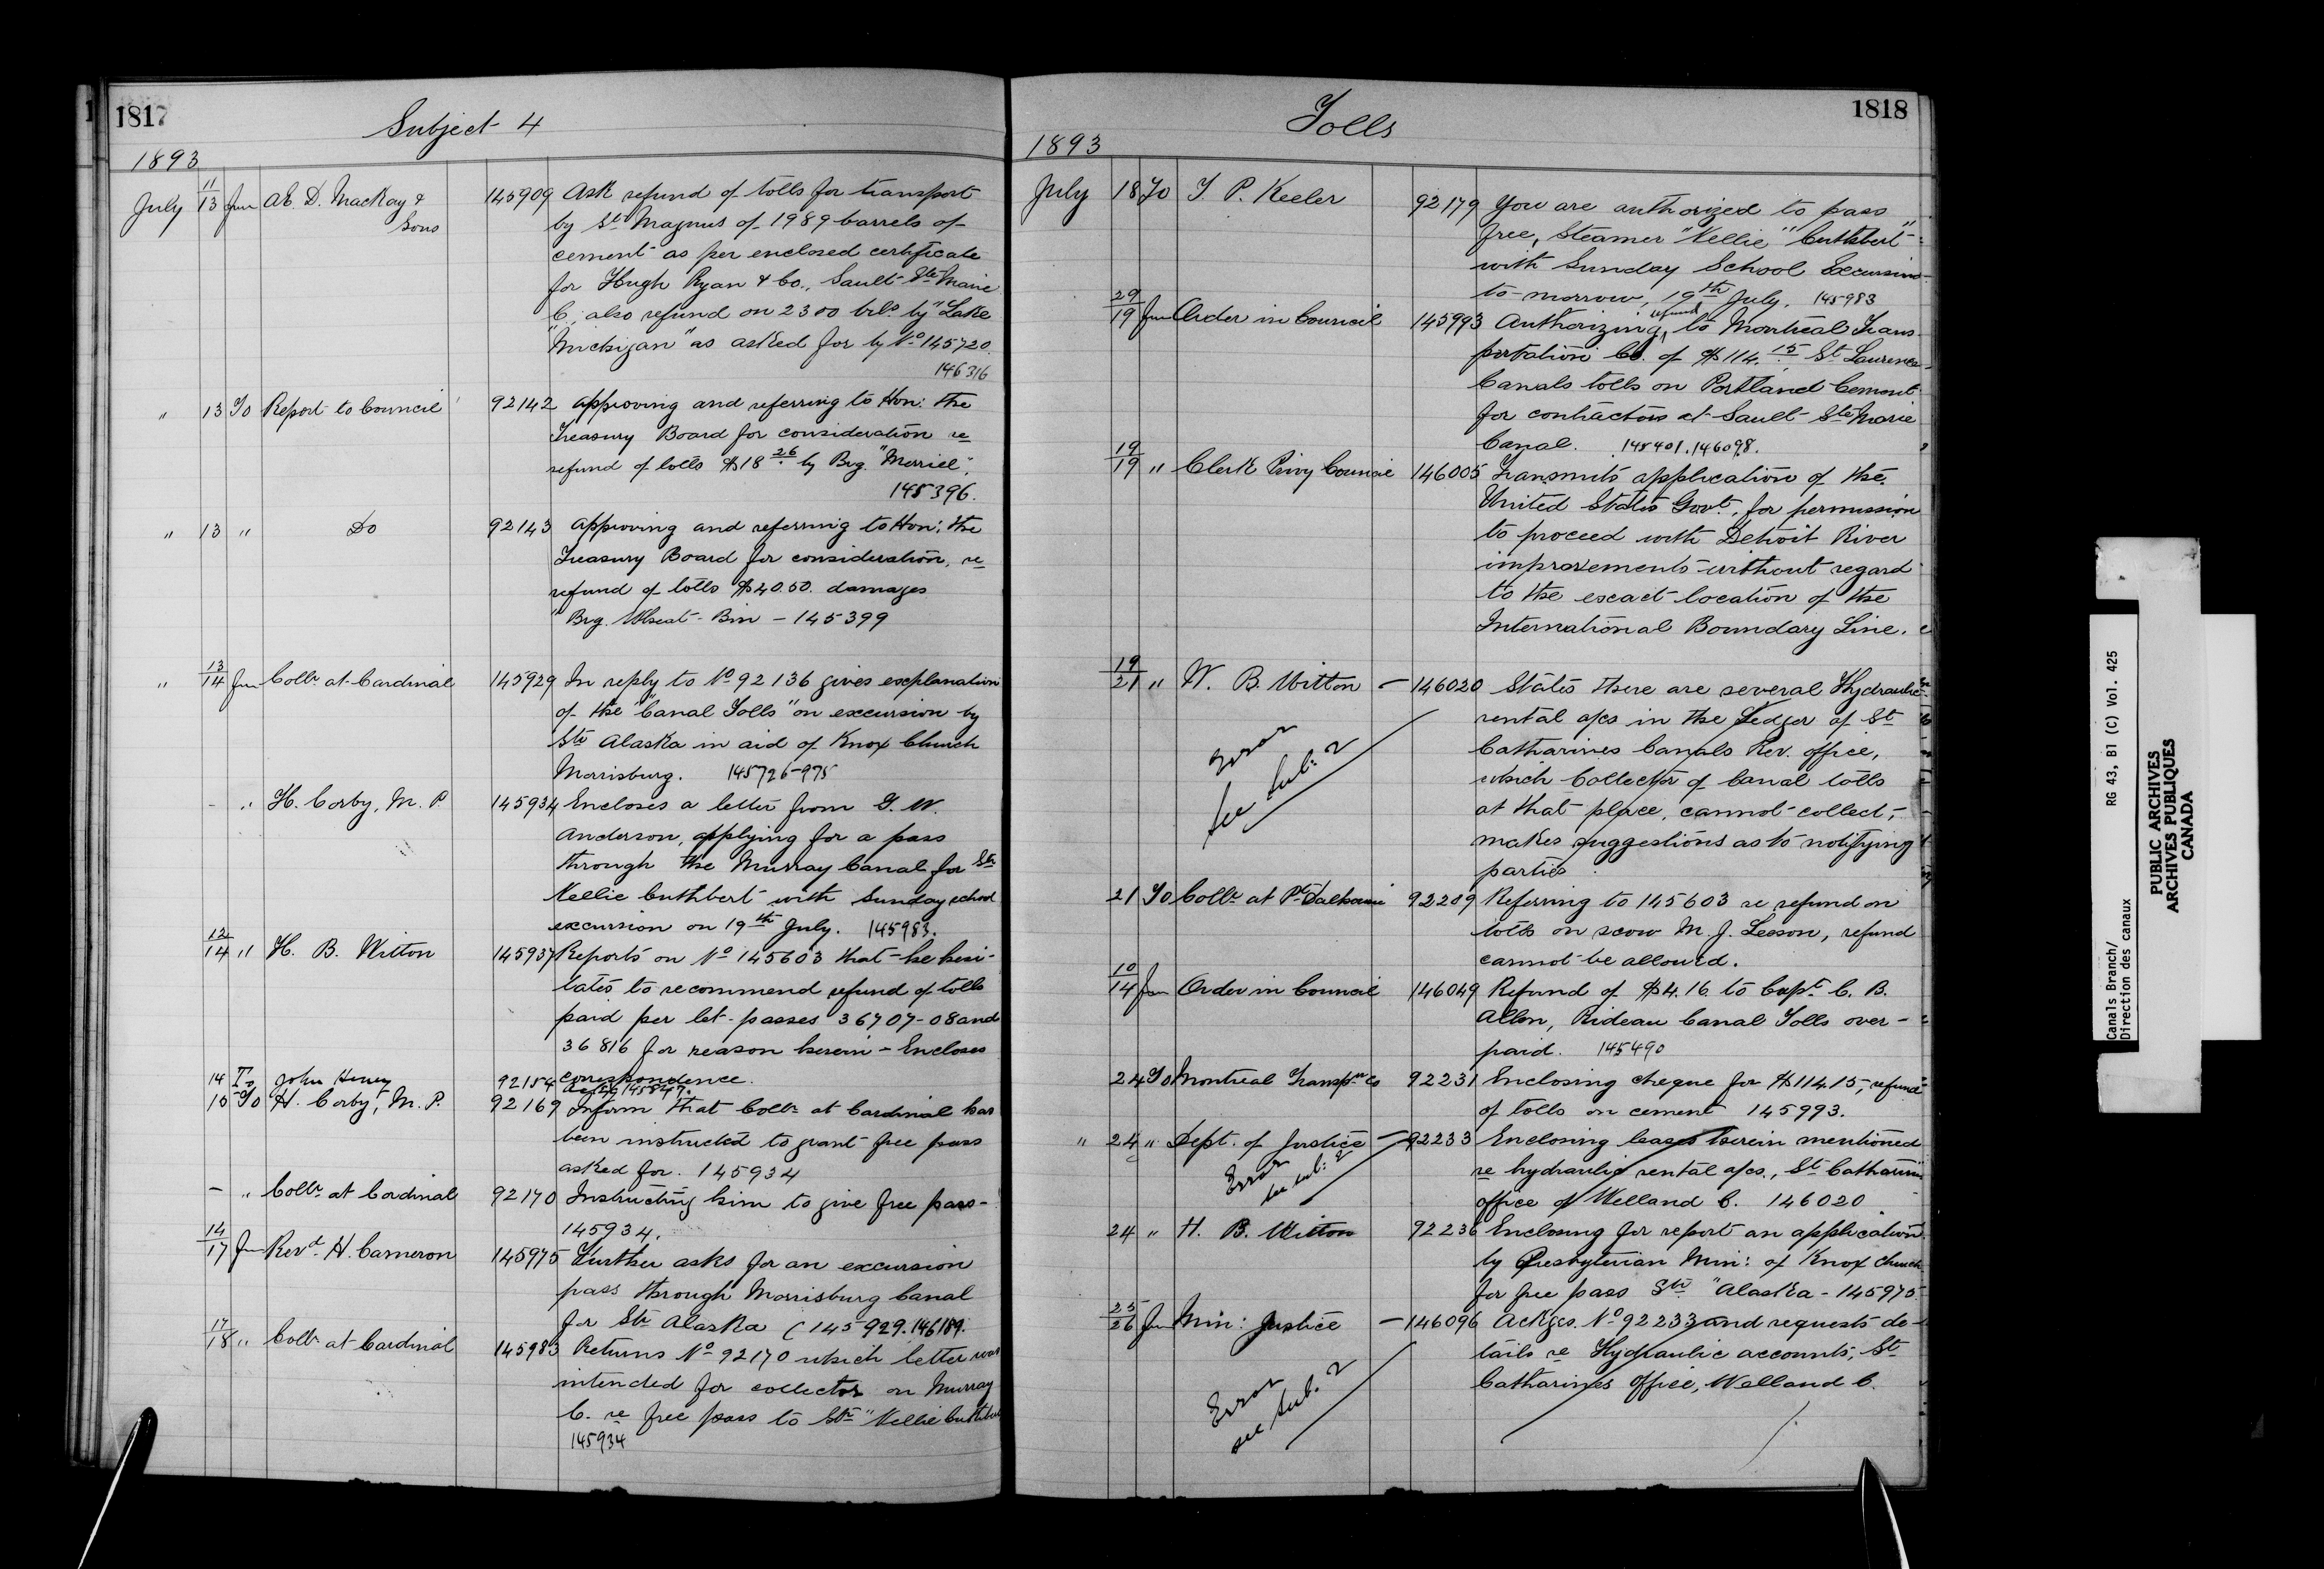 1817
Subject 4
1893
July 11/13 Jun Æ. D. MacKay & 145909 Ask refund of tolls for transport
Sons by Str Magnus of 1989 barrels of
cement as per enclosed certificate
for Hugh Ryan & Co., Sault Ste Marie
C, also refund on 2300 brls by "Lake
"Michigan" as asked for by No 145720.
146316
" 13 To Report to Council 92142 Approving and referring to Hon: the
Treasury Board for consideration re
refund of tolls $18 26 by Brg. "Merriel".
145396.
" 13 " Do 92143 Approving and referring to Hon: the
Treasury Board for consideration, re
refund of tolls $40.50. damages
"Brg. Wheat Bin - 145399
" 13/14 Jun Collr at Cardinal 145929 In reply to No 92136 gives explanation
of the "Canal Tolls" on excursion by
Str Alaska in aid of Knox Church
Morrisburg. 145726-975
- " H. Corby, M. P. 145934 Encloses a letter from G. W.
Anderson, applying for a pass
through the Murray Canal for Str
Nellie Cuthbert with Sunday school
excursion on 19th July. 145983.
12/14 " H. B. Witton 145937 Reports on No 145603 that he hesi-
tates to recommend refund of tolls
paid per let-passes 36707-08 and
36816 for reason herein - Encloses
correspondence.
14 To John Heney 92154 Ackg 145847.
15 To H. Corby, M. P. 92169 Inform that Collr at Cardinal has
been instructed to grant free pass
asked for. 145934
- " Collr at Cardinal 92170 Instructing him to give free pass -
145934.
14/17 Jun Revd. H. Cameron 145975 Further asks for an excursion
pass through Morrisburg Canal
for Str Alaska (145929. 146189.
17/18 " Collr at Cardinal 145983 Returns No 92170 which letter was
intended for collector on Murray
C. re free pass to Str "Nellie Cuthbert
145934
Tolls
1818
1893
July 18 To T. P. Keeler 92179 You are authorized to pass
free, Steamer "Nellie" Cuthbert"
with Sunday School Excursion
to-morrow, 19th July. 145983
29/19 Jun Order in Council 145993 Authorizing refund to Montreal Trans-
portation Co. of $114.15 St Laurence
Canals tolls on Portland Cement
for contractors at Sault Ste Marie
Canal. 145401.146098.
19/19 " Clerk Privy Council 146005 Transmits application of the
United States Govt. for permission
to proceed with Detroit River
improvements without regard
to the exact location of the
International Boundary Line.
19/21 " W. B. Witton - 146020 States there are several Hydraulic
rental a/cs in the Ledger of St
Catharines Canals Rev. office,
which Collector of Canal tolls
at that place, cannot collect,-
makes suggestions as to notifying
parties
Error
see Sub: 2
21 To Collr at Pt Dalhousie 92209 Referring to 145603 re refund on
tolls on scow M. J. Leeson, refund
cannot be allowed.
10/14 Jun Order in Council 146049 Refund of $4.16 to Capt C. B.
Allen, Rideau Canal Tolls over-
paid. 145490
24 To Montreal Transpn Co 92231 Enclosing cheque for $114.15, refund
of tolls on cement 145993.
" 24 " Dept. of Justice - 92233 Enclosing leases herein mentioned
re hydraulic rental a/cs., St Catharines
office of Welland C. 146020
Error
see sub: 2
24 " H. B. Witton 92236 Enclosing for report an application
by Presbyterian Min: of Knox Church
for free pass Str "Alaska - 145975
25/26 Jun Min: Justice - 146096 Ackges. No 92233 and requests de-
tails re Hydraulic accounts, St
Catharines office, Welland C.
Error
see Sub. 2
Canals Branch/
Direction des canaux
RG 43, B1 (C) Vol. 425
PUBLIC ARCHIVES
ARCHIVES PUBLIQUES
CANADA